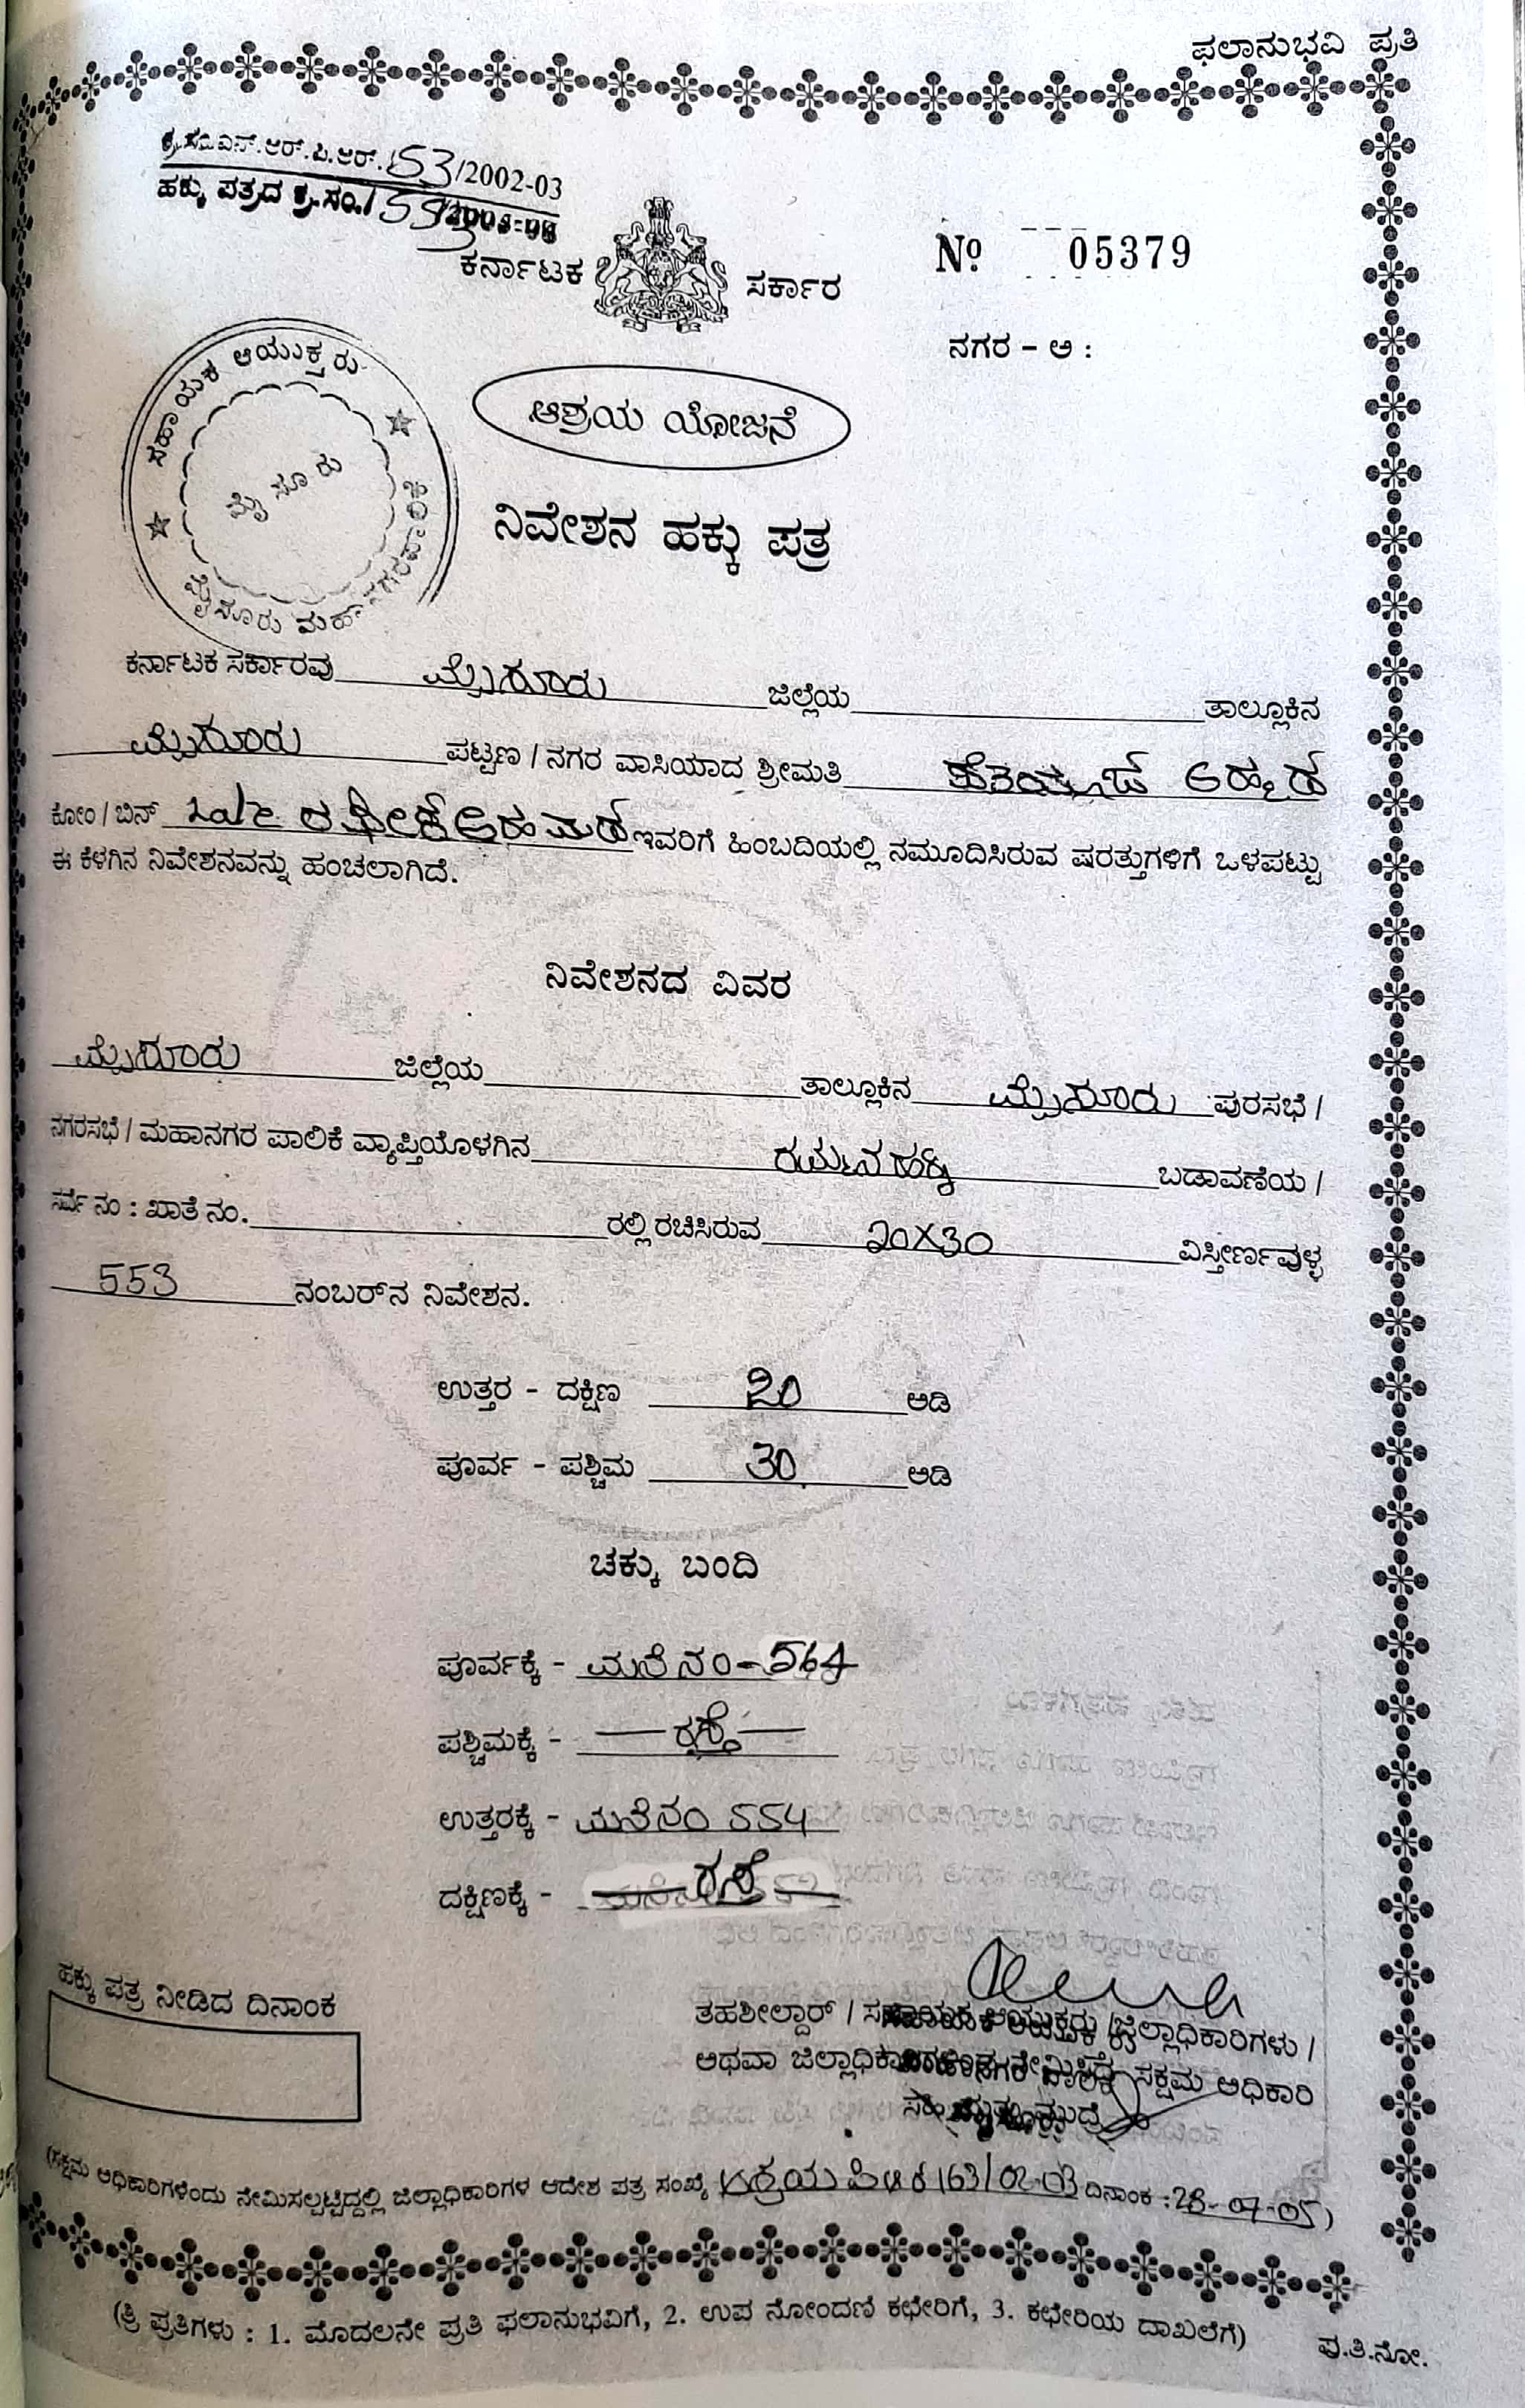 ಫಲಾನುಭವಿ ಪ್ರತಿ
ಕ್ರ.ಸಂ.ಎನ್.ಆರ್.ಪಿ.ಆರ್.153/2002-03
ಹಕ್ಕು ಪತ್ರದ ಕ್ರ.ಸಂ.
ಕರ್ನಾಟಕ ಸರ್ಕಾರ
Nº 05379
ನಗರ - ಅ :
ಸಹಾಯಕ ಆಯುಕ್ತರು
ಮೈಸೂರು
ಮೈಸೂರು ಮಹಾನಗರಪಾಲಿಕೆ
ಆಶ್ರಯ ಯೋಜನೆ
ನಿವೇಶನ ಹಕ್ಕು ಪತ್ರ
ಕರ್ನಾಟಕ ಸರ್ಕಾರವು ಮೈಸೂರು ಜಿಲ್ಲೆಯ ತಾಲ್ಲೂಕಿನ
ಮೈಸೂರು ಪಟ್ಟಣ / ನಗರ ವಾಸಿಯಾದ ಶ್ರೀಮತಿ
ಕೋಂ / ಬಿನ್ ಇವರಿಗೆ ಹಿಂಬದಿಯಲ್ಲಿ ನಮೂದಿಸಿರುವ ಷರತ್ತುಗಳಿಗೆ ಒಳಪಟ್ಟು
ಈ ಕೆಳಗಿನ ನಿವೇಶನವನ್ನು ಹಂಚಲಾಗಿದೆ.
ನಿವೇಶನದ ವಿವರ
ಮೈಸೂರು ಜಿಲ್ಲೆಯ ತಾಲ್ಲೂಕಿನ ಮೈಸೂರು ಪುರಸಭೆ /
ನಗರಸಭೆ / ಮಹಾನಗರ ಪಾಲಿಕೆ ವ್ಯಾಪ್ತಿಯೊಳಗಿನ ರಮ್ಮನಹಳ್ಳಿ ಬಡಾವಣೆಯ /
ಸರ್ವೆ ನಂ : ಖಾತೆ ನಂ. ರಲ್ಲಿ ರಚಿಸಿರುವ 20X30 ವಿಸ್ತೀರ್ಣವುಳ್ಳ
553 ನಂಬರ್‌ನ ನಿವೇಶನ.
ಉತ್ತರ - ದಕ್ಷಿಣ 20 ಅಡಿ
ಪೂರ್ವ - ಪಶ್ಚಿಮ 30 ಅಡಿ
ಚಕ್ಕು ಬಂದಿ
ಪೂರ್ವಕ್ಕೆ - ಮನೆ ನಂ-564
ಪಶ್ಚಿಮಕ್ಕೆ - ರಸ್ತೆ
ಉತ್ತರಕ್ಕೆ - ಮನೆ ನಂ 554
ದಕ್ಷಿಣಕ್ಕೆ - ರಸ್ತೆ
ಹಕ್ಕು ಪತ್ರ ನೀಡಿದ ದಿನಾಂಕ
ತಹಶೀಲ್ದಾರ್ / ಸಹಾಯಕ ಆಯುಕ್ತರು / ಜಿಲ್ಲಾಧಿಕಾರಿಗಳು /
ಅಥವಾ ಜಿಲ್ಲಾಧಿಕಾರಿಗಳಿಂದ ನೇಮಿಸಿದ ಸಕ್ಷಮ ಅಧಿಕಾರಿ
ಸಹಿ ಮತ್ತು ಮುದ್ರೆ
(ಸಕ್ಷಮ ಅಧಿಕಾರಿಗಳೆಂದು ನೇಮಿಸಲ್ಪಟ್ಟಿದ್ದಲ್ಲಿ ಜಿಲ್ಲಾಧಿಕಾರಿಗಳ ಆದೇಶ ಪತ್ರ ಸಂಖ್ಯೆ ಆಶ್ರಯ ಪಿಆರ 163/02-03 ದಿನಾಂಕ : 28-07-05)
(ತ್ರಿ ಪ್ರತಿಗಳು : 1. ಮೊದಲನೇ ಪ್ರತಿ ಫಲಾನುಭವಿಗೆ, 2. ಉಪ ನೋಂದಣಿ ಕಛೇರಿಗೆ, 3. ಕಛೇರಿಯ ದಾಖಲೆಗೆ)
ಪ.ತಿ.ನೋ.